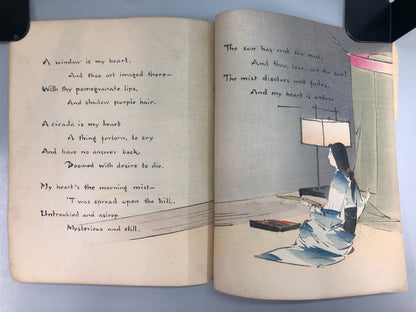 A window is my heart,
And thou art imaged there—
With thy pomegranate lips,
And shadow purple hair.
A cicada is my heart
A thing forlorn, to cry
And have no answer back,
Doomed with desire to die.
My heart's the morning mist—
'T was spread upon the hill,
Untroubled and asleep
Mysterious and still.
The sun has rend the mist,
And thou, love, art the sun!
The mist disolves and fades,
And my heart is undone.